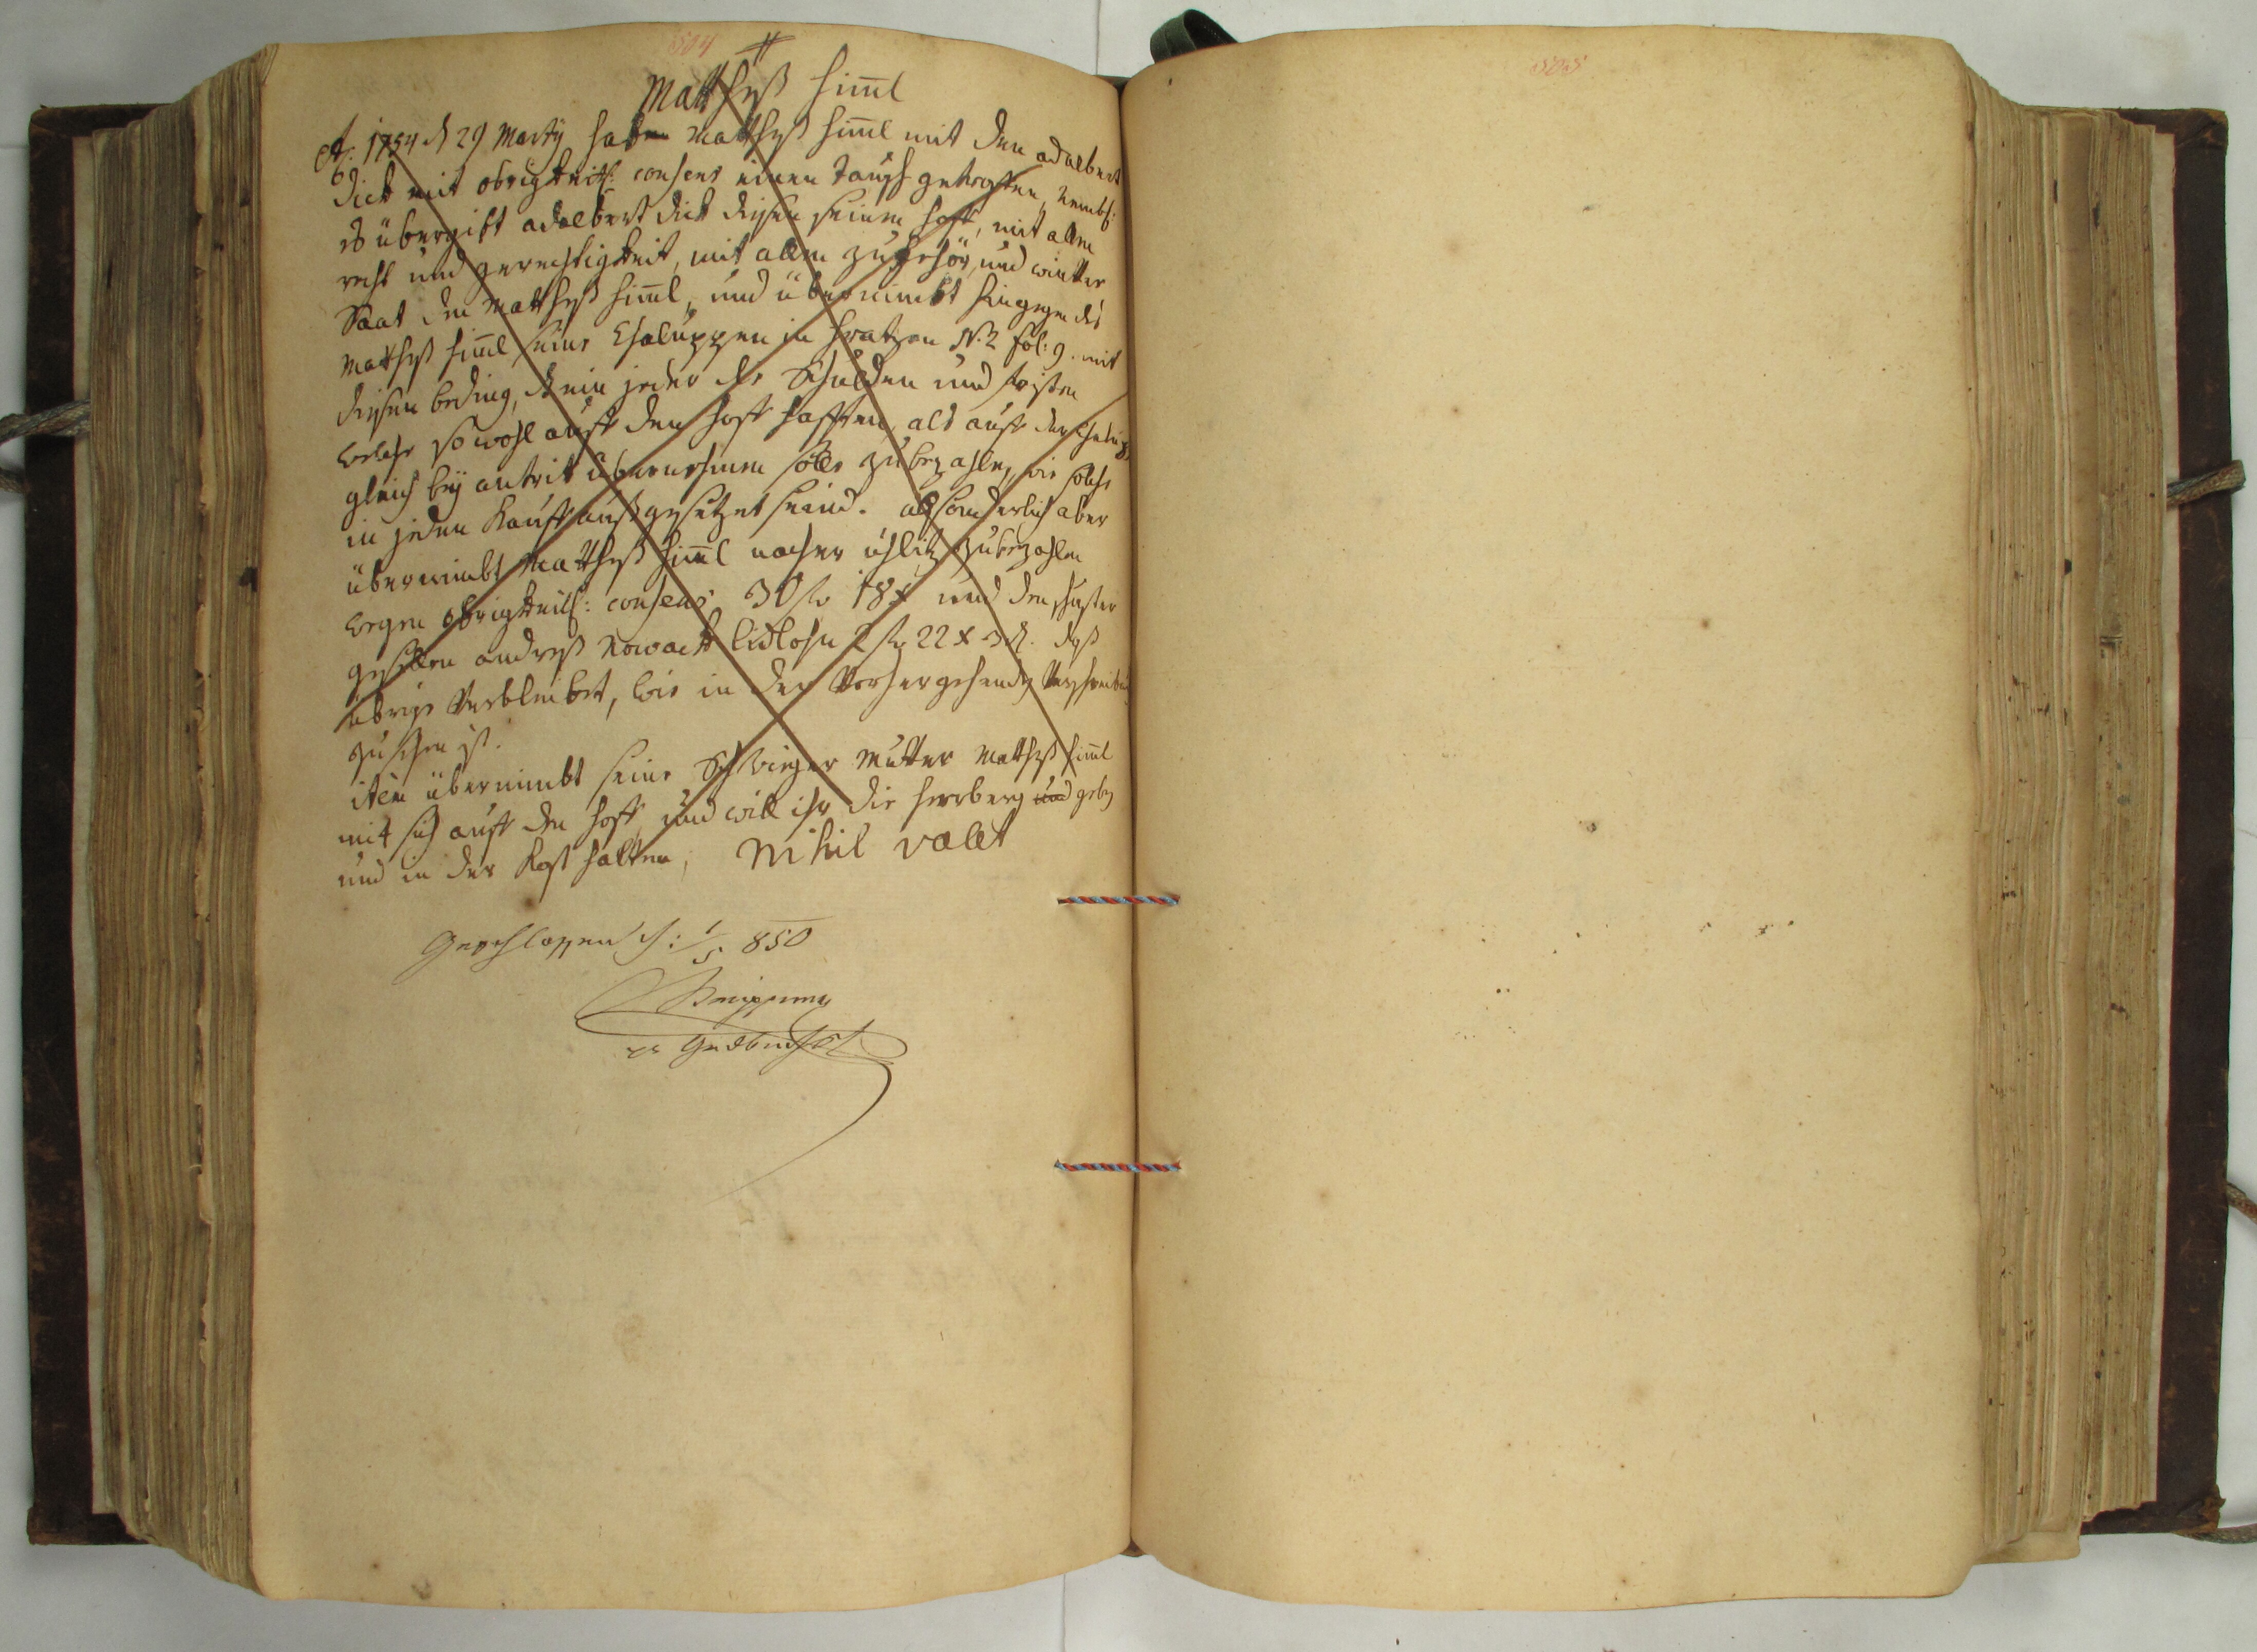 504
Mattheß Himl
Ao: 1754 d 29 Marty haben Mattheß Himl mit den Adalbert
Dick mit obrigkeitl: consens einen Tausch getroffen, nembl:
es übergibt Adalbert Dick diesen seinen Hoff, mit allen
recht und gerechtigkeit, mit allen zugehör, und winter
Saat den Mattheß Himl, und übernimbt hingegen des
Mattheß Himl seine Chaluppen in Hratzen N. 2 fol: 9. mit
diesen beding, d ein jeder die Schulden und fristen
welche so wohl auff den Hoff hafften, als auff der Chalup:
gleich bey antrit übernehmen solle zu bezahlen, wie solche
in jeden Kauff außgesetzet seind. absonderlich aber
übernimbt Mattheß Himl nacher zubezahlen
wegen obrigkeitl: consens 30 fl 18 x und den schuster
gesellen Andreß Nowack Lidlohn 2 fl 22 x 3 d. daß
übrige Verbleibet, wie in der Vorhergehenden Verschreibung
zu sehen ist.
item übernimbt seine Schwieger Mutter Mattheß Himl
mit sich auff den Hoff, und will ihr die Herberg und geben
und in der Kost halten, Nihil valet
Geschlossen d: 1/5 850
505